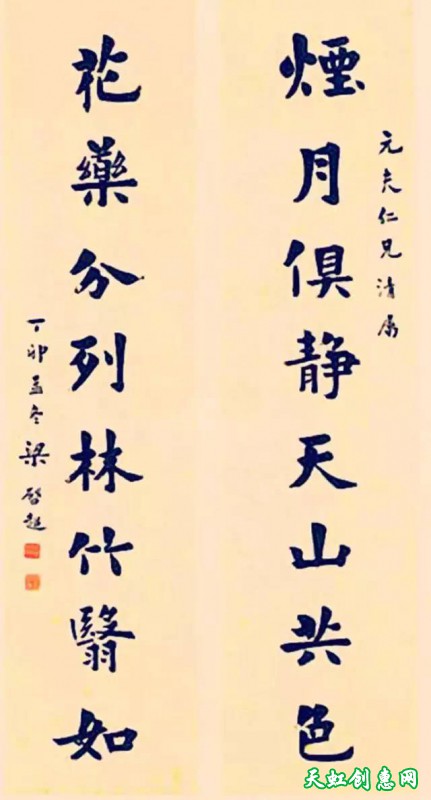 煙月俱静天山共色
元夫仁兄清属
花藥分列林竹翳如
丁卯孟冬梁啓超
天虹创惠网